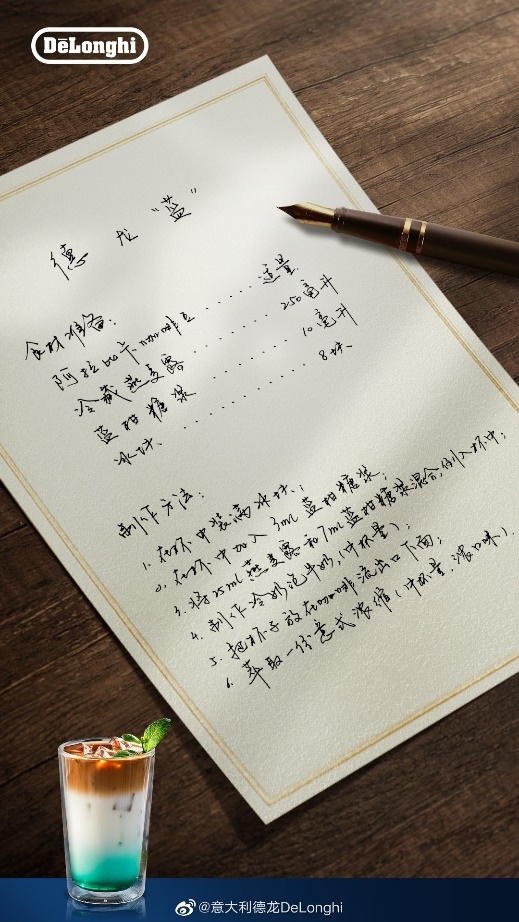 DeLonghi
德龙“蓝”
食材准备：
阿拉bo卡咖啡豆......适量
冷藏燕麦露.......250毫升
蓝柑糖浆........10毫升
冰块..........8块
制作方法：
1. 在杯中装满冰块；
2. 在杯中加入3mL蓝柑糖浆；
3. 将25mL燕麦露和7mL蓝柑糖浆混合,倒入杯中；
4. 制作冷奶泡牛奶,(中杯量)；
5. 把杯子放在咖啡流出口下面；
6. 萃取一份意式浓缩(中杯量,浓口味).
@意大利德龙DeLonghi